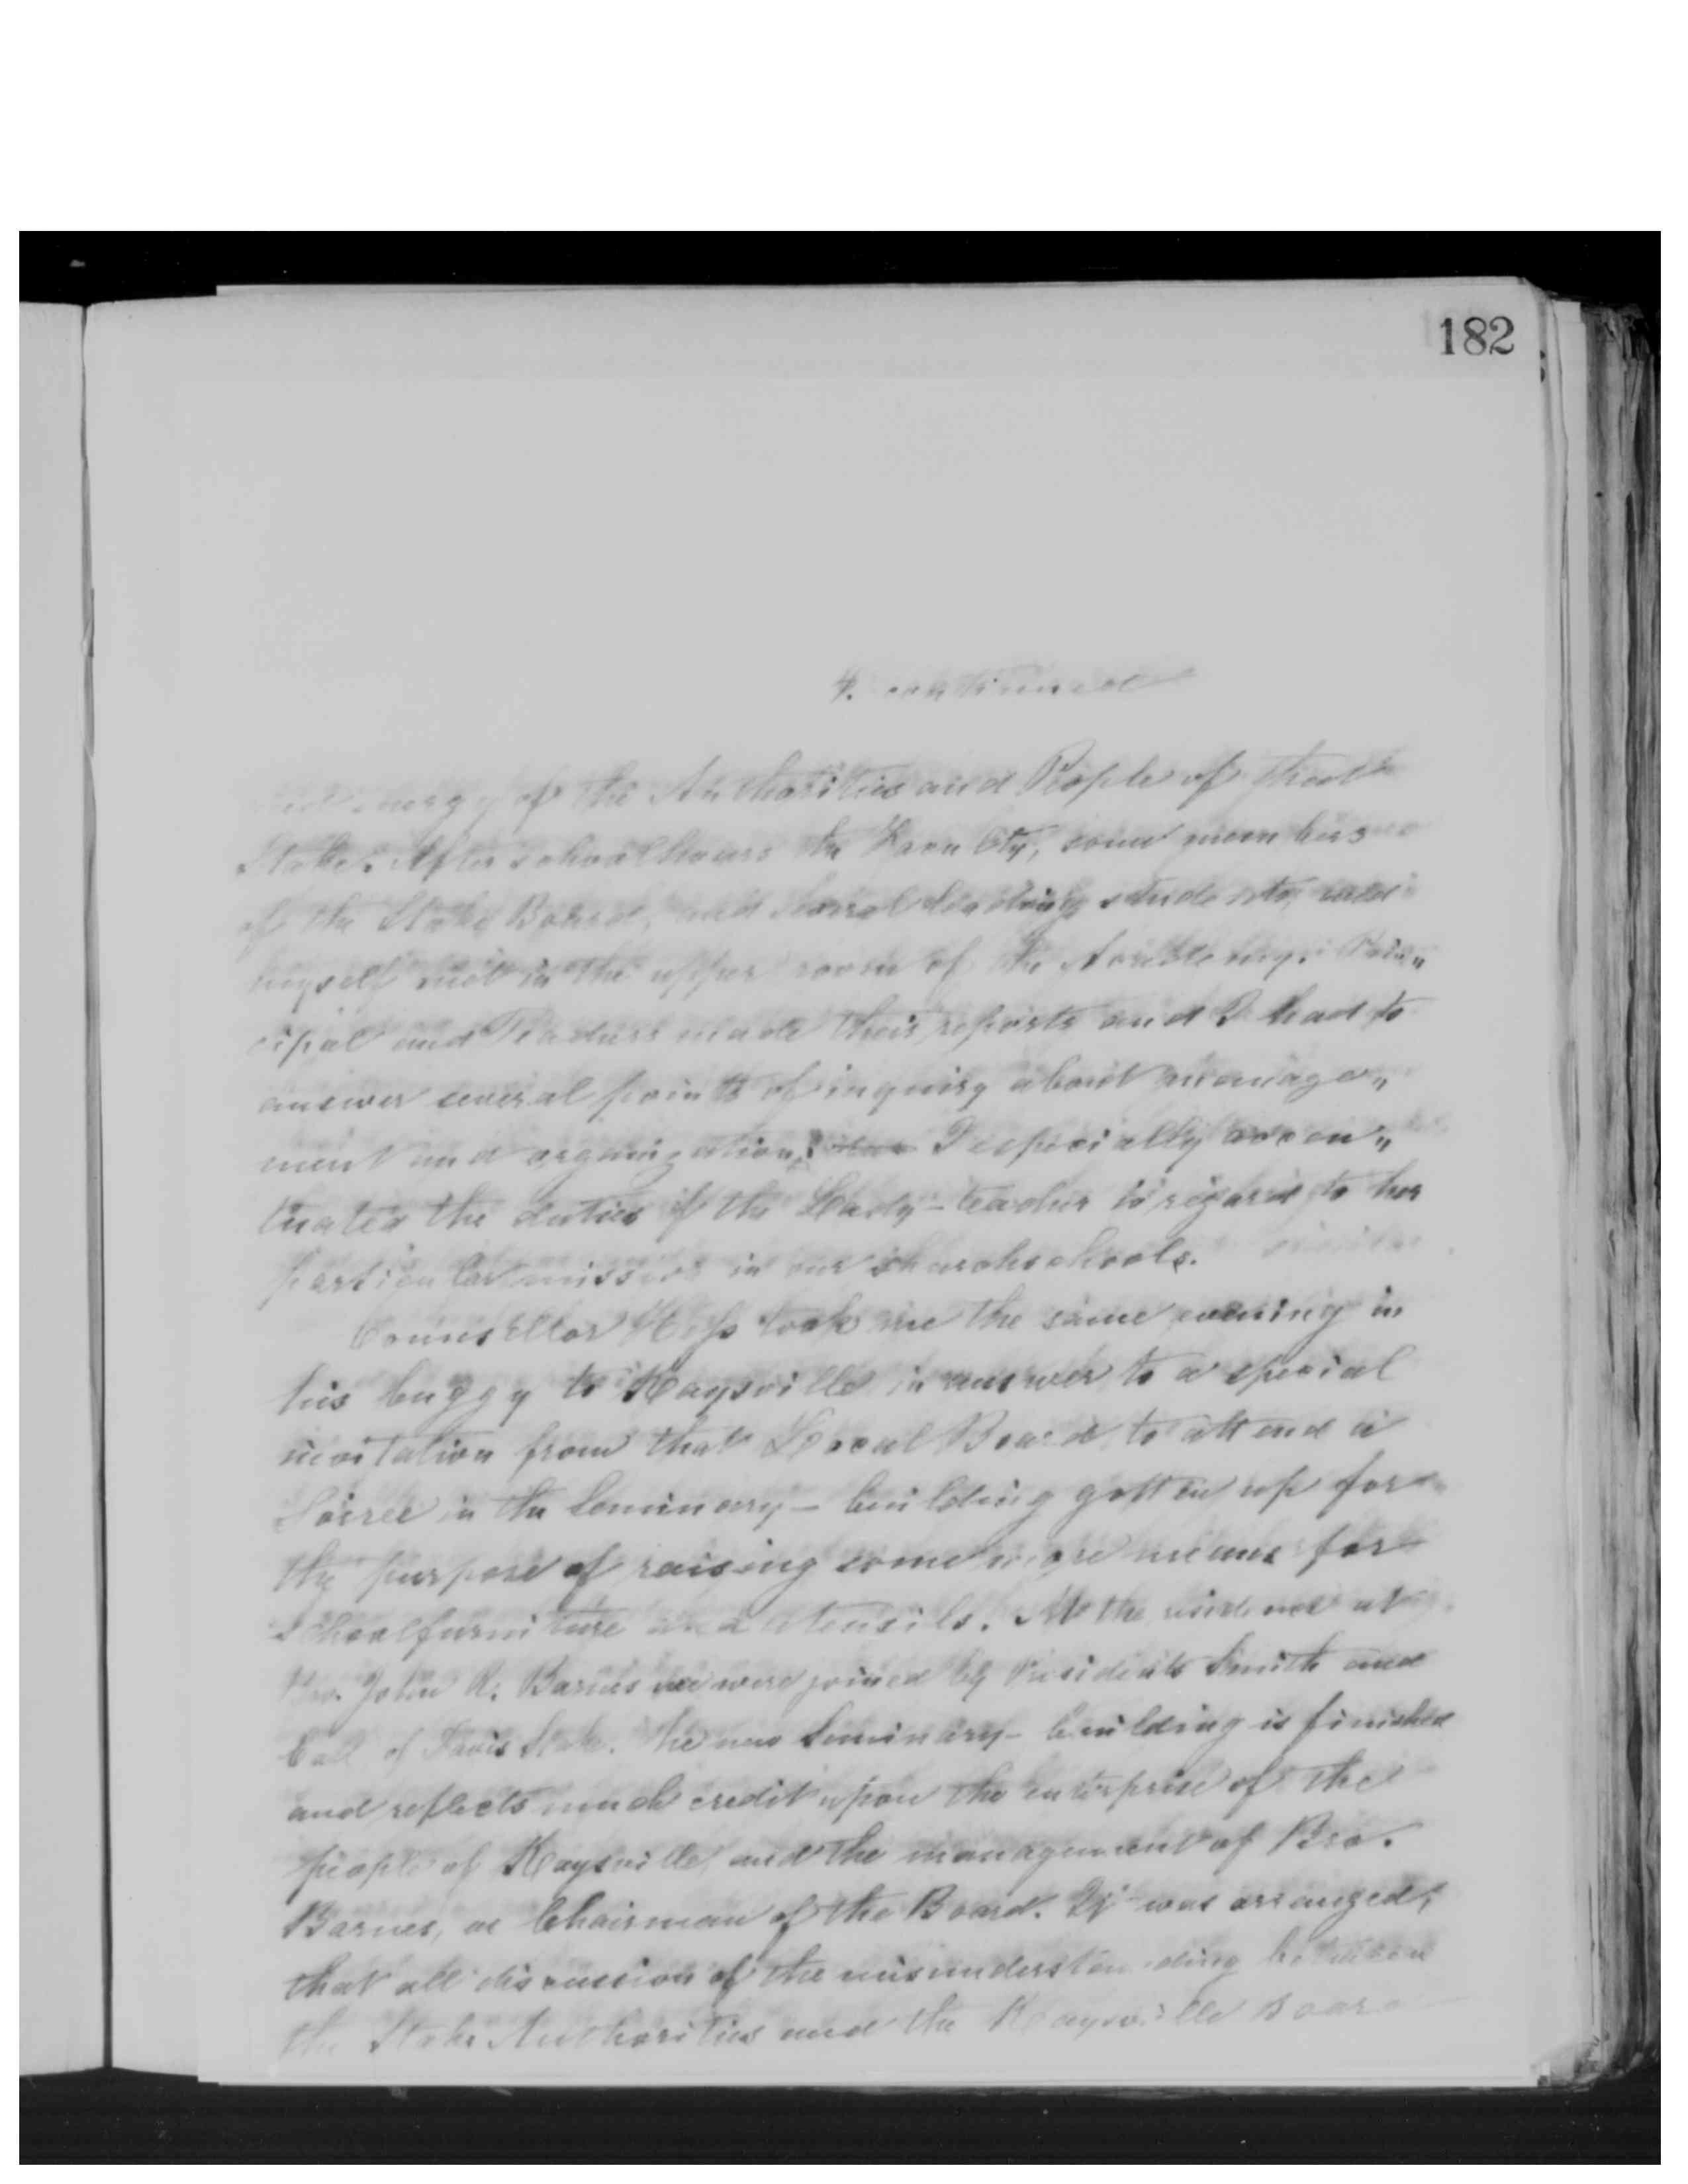 182
4. continued
energy of the Authorities and People of that
Stake. After schoolhours the Faculty, some members
of the Stake Board, and several leading students, and
myself met in the upper room of the Academy. Prin„
cipal and Teachers made their reports and I had to
answer several points of inquiry about manage„
ment and organization. I especially accen„
tuated the duties of the Lady-teacher in regard to her
particular mission in our churchschools.
Counsellor Hess took me the same evening in
his buggy to Kaysville in answer to a special
invitation from that Local Board to attend a
Soiree in the Seminary-building gotten up for
the purpose of raising some more means for
schoolfurniture and utensils. At the residence of
Bro. John R. Barnes we were joined by Presidents Smith and
Call of Davis Stake. The new Seminary-building is finished
and reflects much credit upon the enterprise of the
people of Kaysville and the management of Bro.
Barnes, as Chairman of the Board. It was arranged,
that all discussion of the misunderstanding between
the Stake Authorities and the Kaysville Board